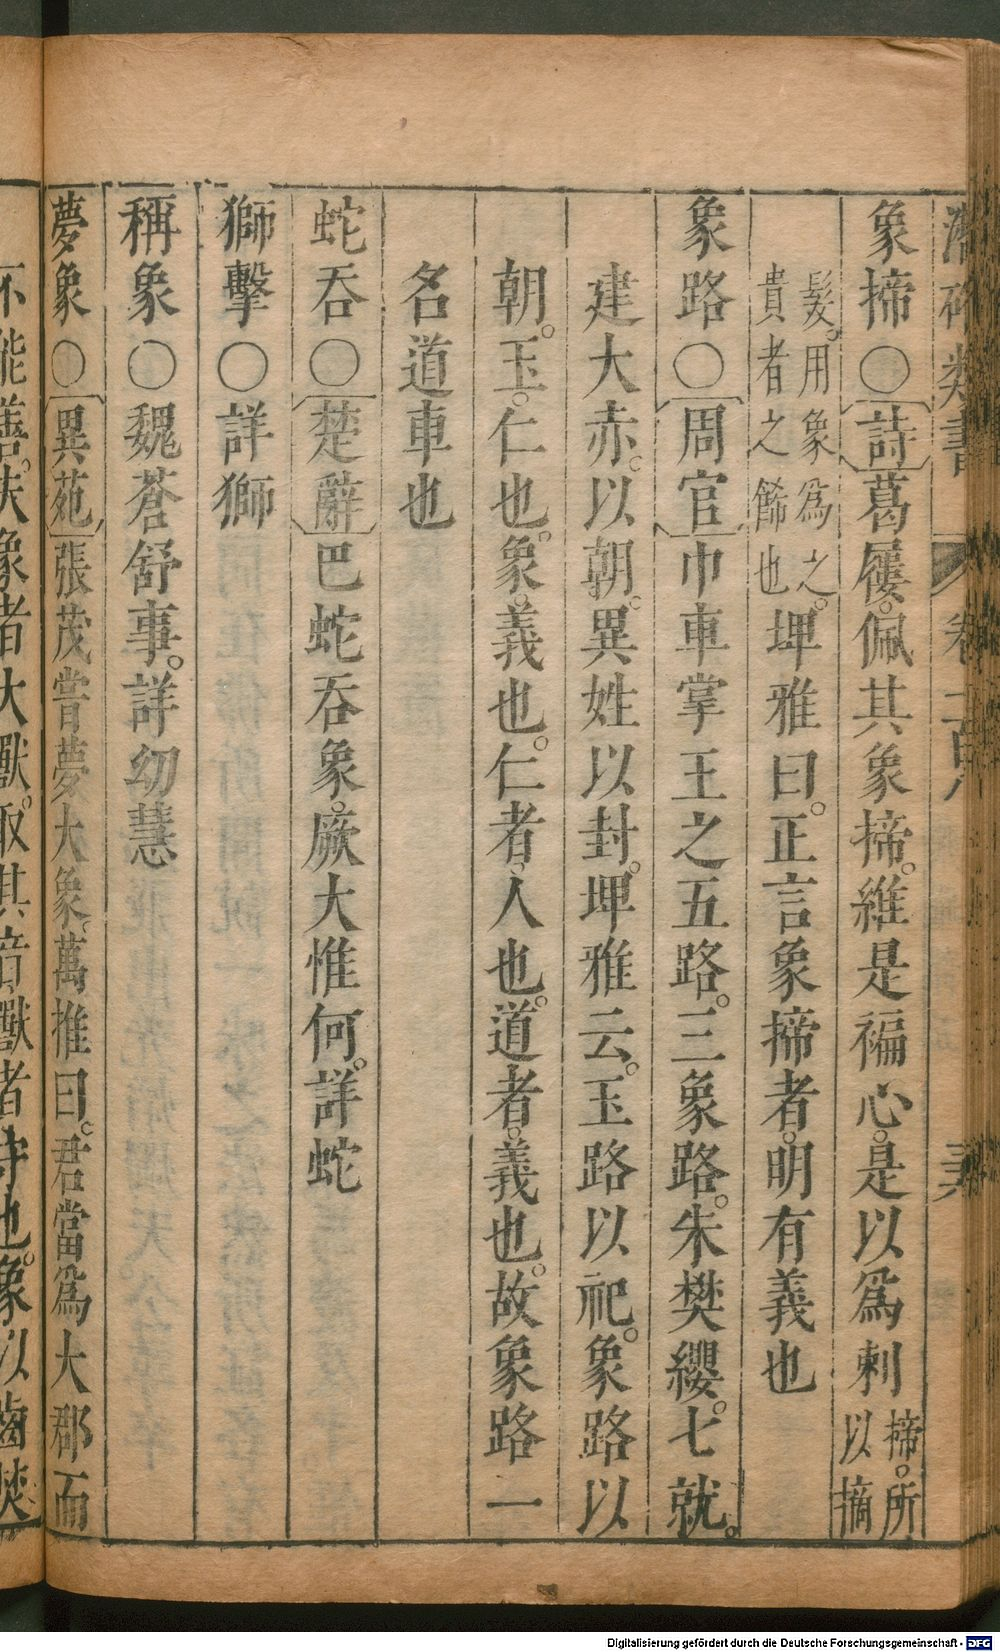 潛確類書 卷一百八 三六
象揥○〔詩〕葛屨。佩其象揥。維是褊心。是以爲刺 揥。所以摘
髮。用象爲之。貴者之餙也 埤雅曰。正言象揥者。明有義也
象路○〔周官〕巾車掌王之五路。三象路。朱樊纓。七就。
建大赤。以朝。異姓以封。埤雅云。玉路以祀。象路以
朝。玉。仁也。象。義也。仁者。人也。道者。義也。故象路一
名道車也
蛇吞○〔楚辭〕巴蛇吞象。厥大惟何。詳蛇
獅擊○詳獅
稱象○魏蒼舒事。詳幼慧
夢象○〔異苑〕張茂嘗夢大象。萬推曰。君當爲大郡而
不能善。夫象者大獸。取其音獸者守也。象以齒焚
Digitalisierung gefördert durch die Deutsche Forschungsgemeinschaft - DFG